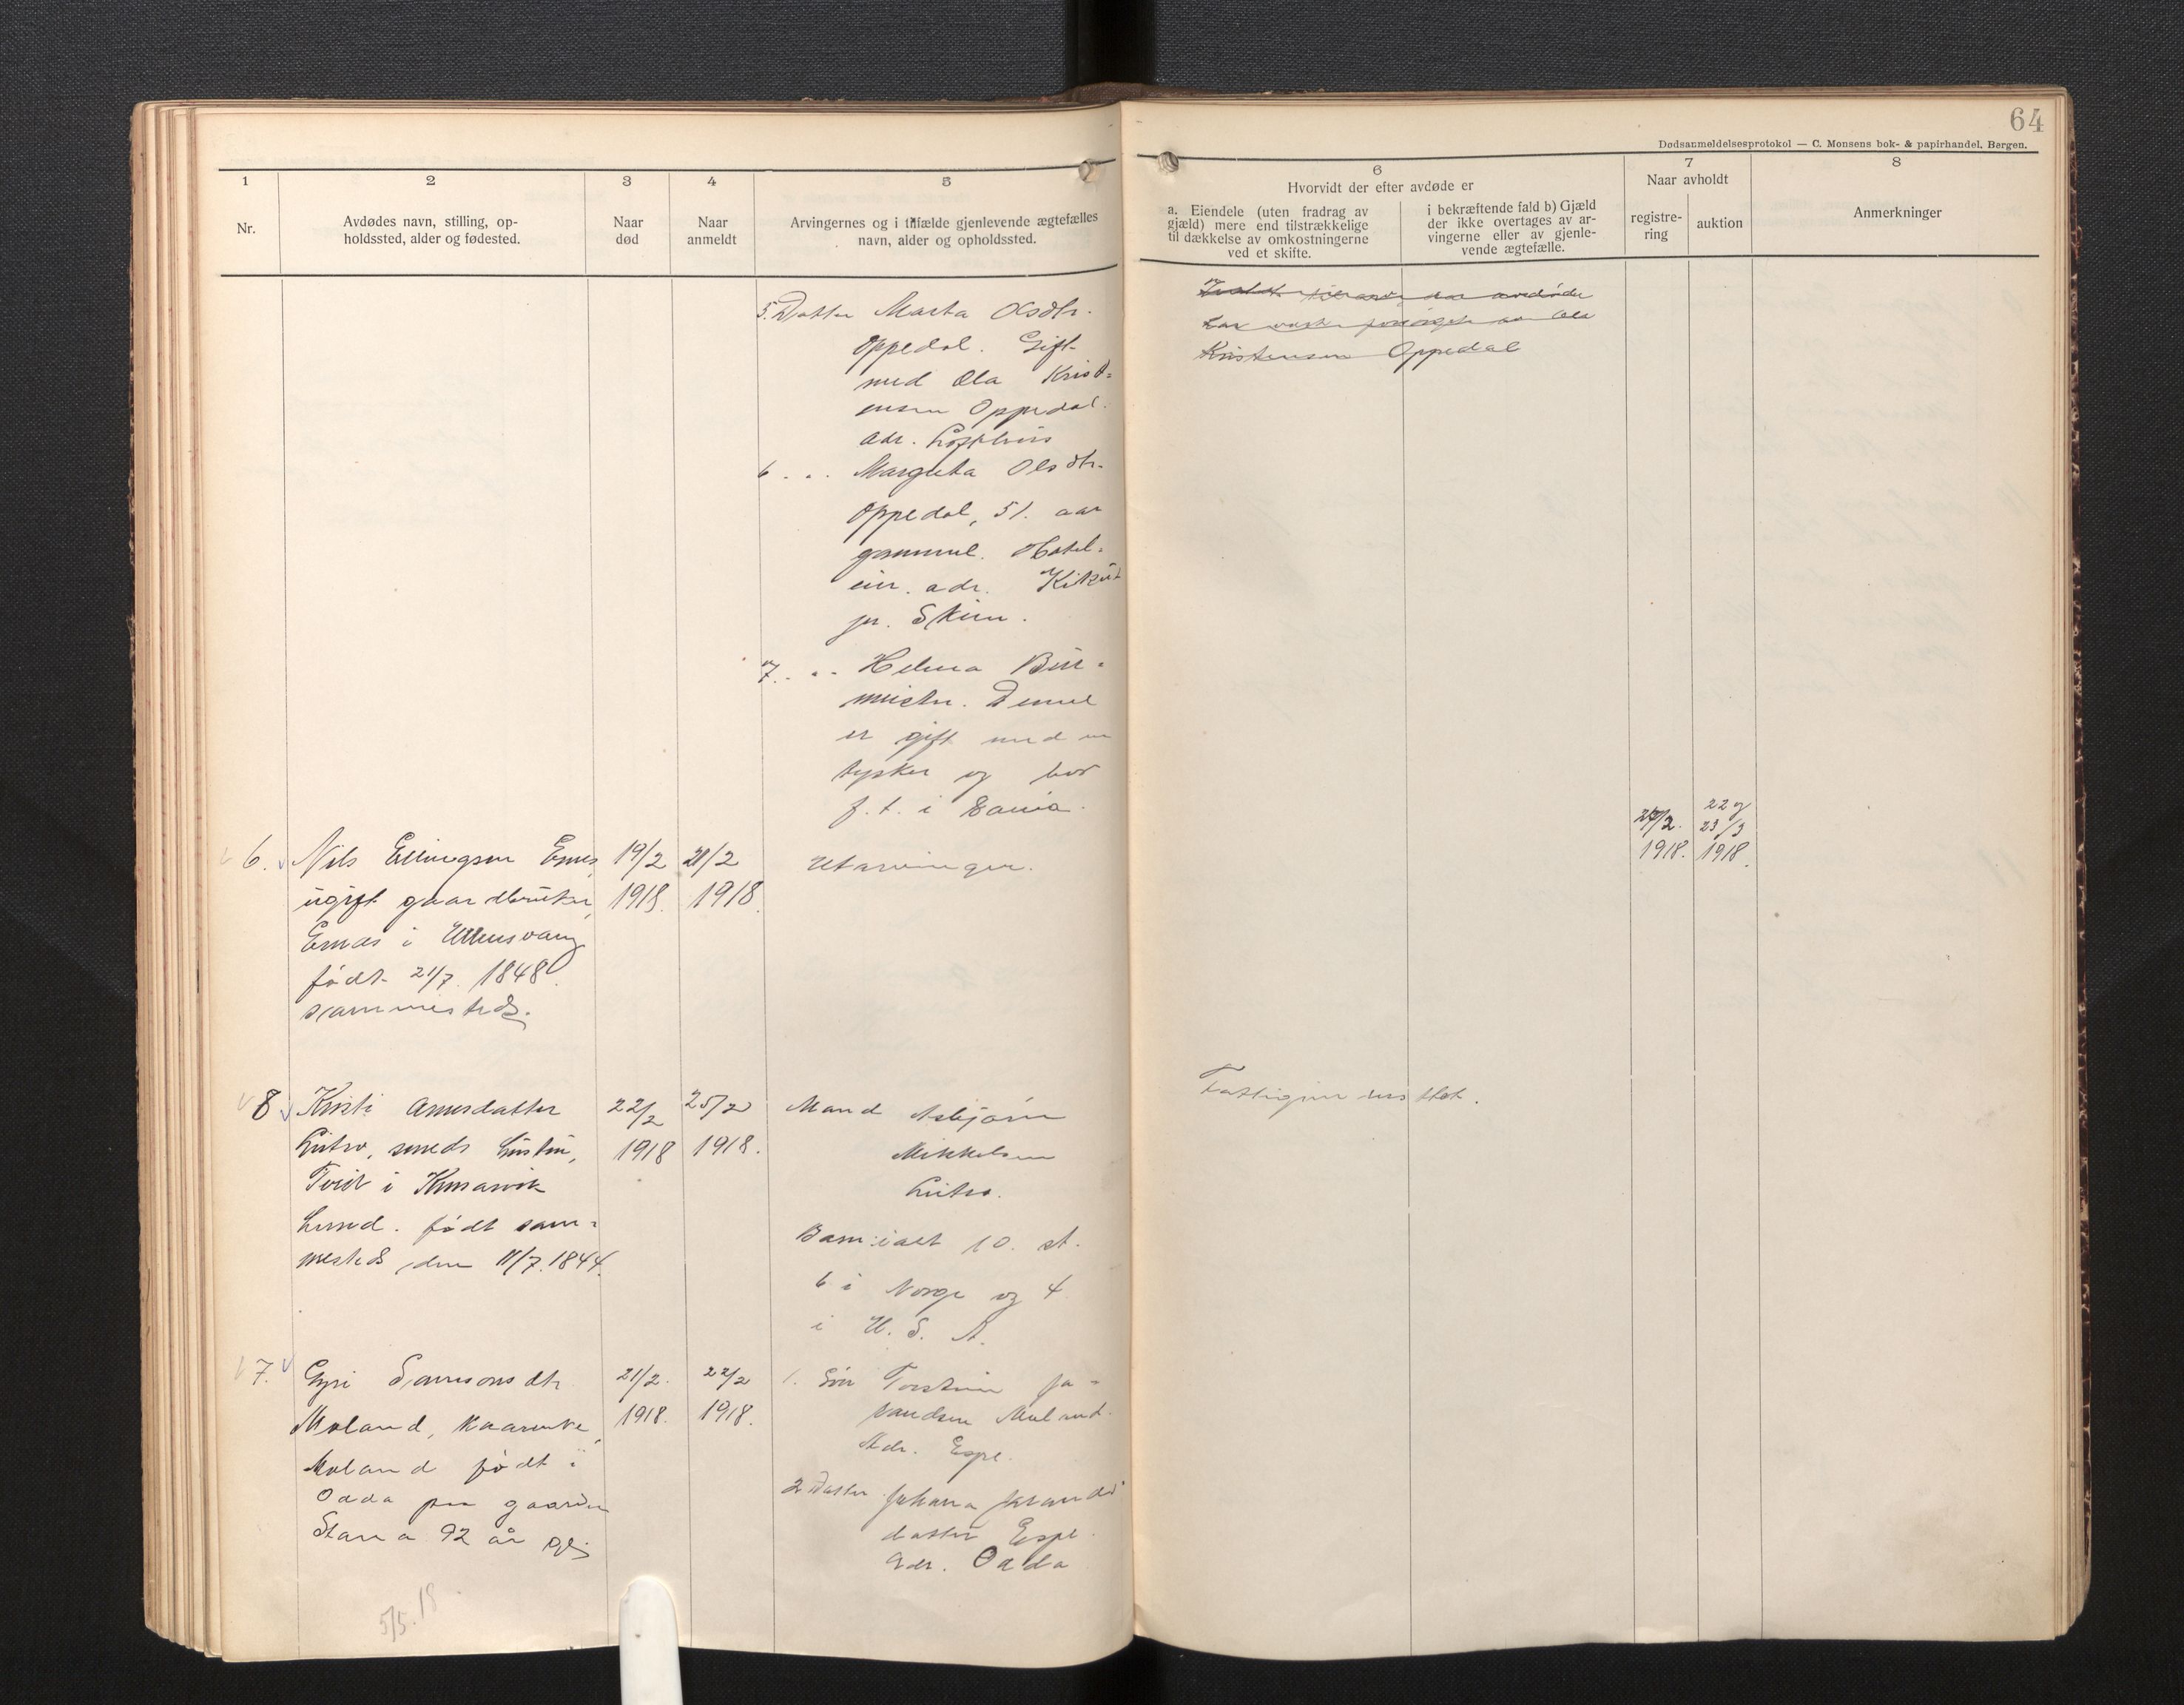 64
Dødsanmeldelsesprotokol — C. Monsens bok- & papirhandel, Bergen.
1
2
3
4
5
6
7
8
Nr.
Avdødes navn, stilling, op-
holdssted, alder og fødested.
Naar
død
Naar
anmeldt
Arvingernes og i tilfælde gjenlevende ægtefælles
navn, alder og opholdssted.
Hvorvidt der efter avdøde er
a. Eiendele (uten fradrag av
gjæld) mere end tilstrækkelige
til dækkelse av omkostningerne
ved et skifte.
i bekræftende fald b) Gjæld
der ikke overtages av ar-
vingerne eller av gjenle-
vende ægtefælle.
Naar avholdt
registre-
ring
auktion
Anmerkninger
5. Datter Marta Olsdtr.
Oppedal. Gift
med Ola Krist=
ensen Oppedal.
adr. Lofthus
6 . . . Margreta Olsdtr.
Oppedal, 51. aar
gammel. Hotel=
eier. adr. Kikut
pr. Skien.
7 . . . Helena Bur=
meister. Denne
er gift med en
tysker og bor
f. t. i
avdøde
Ola
Kristensen Oppedal
6. Nils Ellingsen Ernes,
ugift gaardbruker,
Ernæs i Ullensvang
født 21/7. 1848.
sammesteds.
19/2
1918.
21/2
1918.
Utarvinger.
27/2.
1918.
22 og
23/3
1918.
8 Kristi Arnesdatter
Lutro, smeds hustru,
Tveit i Kinsarvik
herred. født sam=
mesteds, den 11/7. 1844.
22/2
1918
25/2
1918.
Mand Asbjørn
Mikkelsen
Lutro.
Barn: ialt 10. st.
6 i Norge og 4
i U. S. A.
7. Gyri Samsonsdtr
Moland, kaarenke,
Moland født i
Odda paa gaarden
92 år gl.
21/2.
1918.
22/2
1918.
1. Søn Torstein Ja=
Moland.
Adr. Espe.
2 Datter Johana
datter Espe.
adr. Odda
5/5. 18.